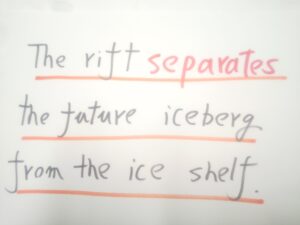 The rift separates
the future iceberg
from the ice shelf.